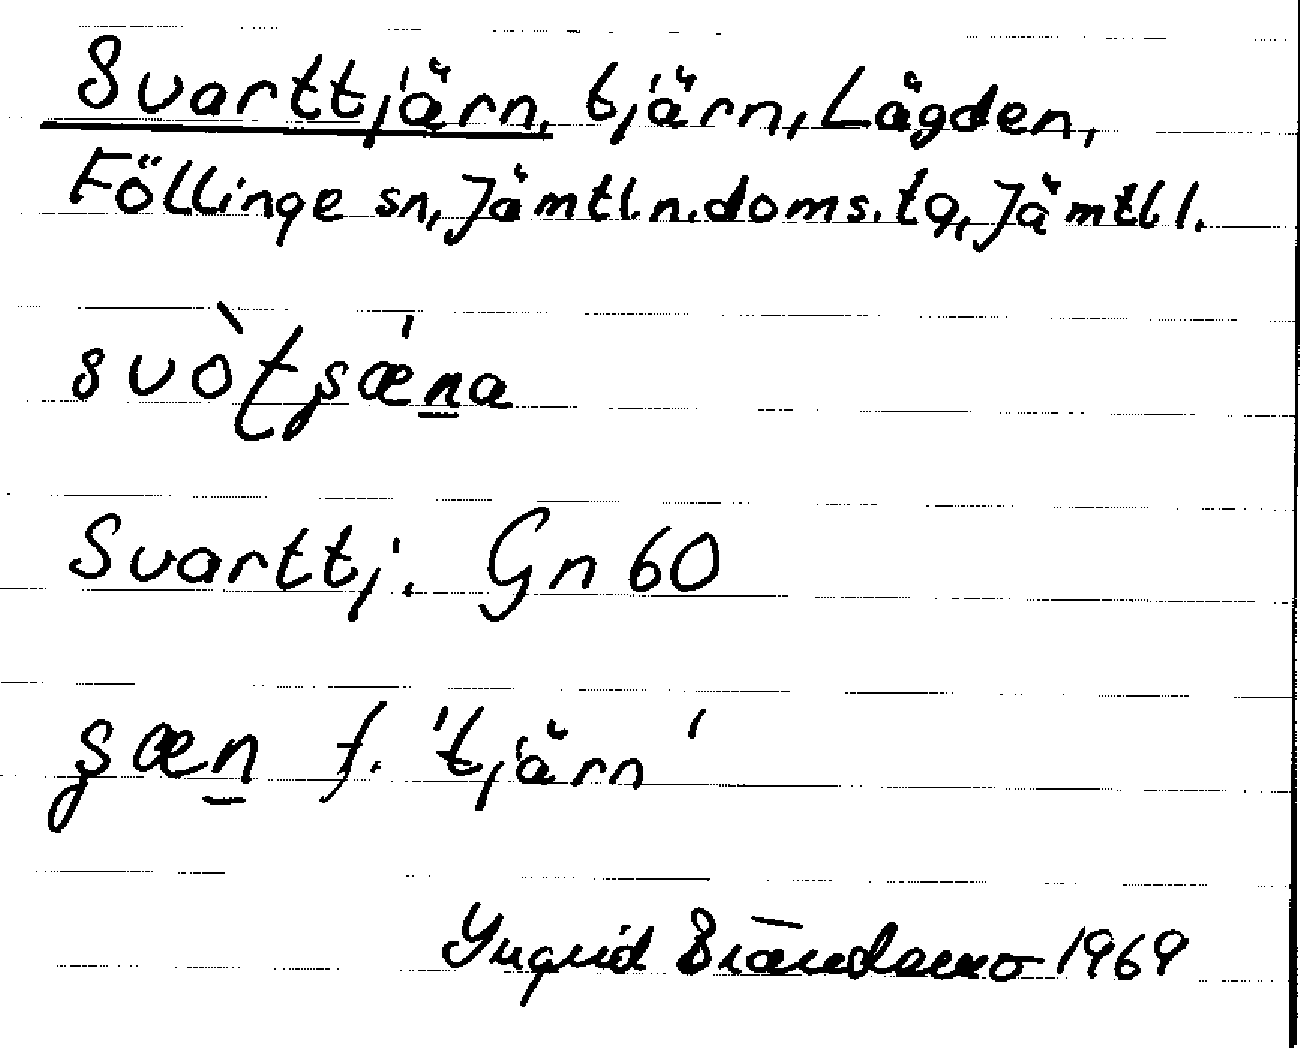 Svarttjärn, tjärn, Lågden,
Föllinge sn, Jämtl. n. doms. tg, Jämtl l.
svòt̡s̡ǽn̲a
Svarttj. Gn 60
s̡æn̲ f. 'tjärn'
Yngrid Brändemo 1969